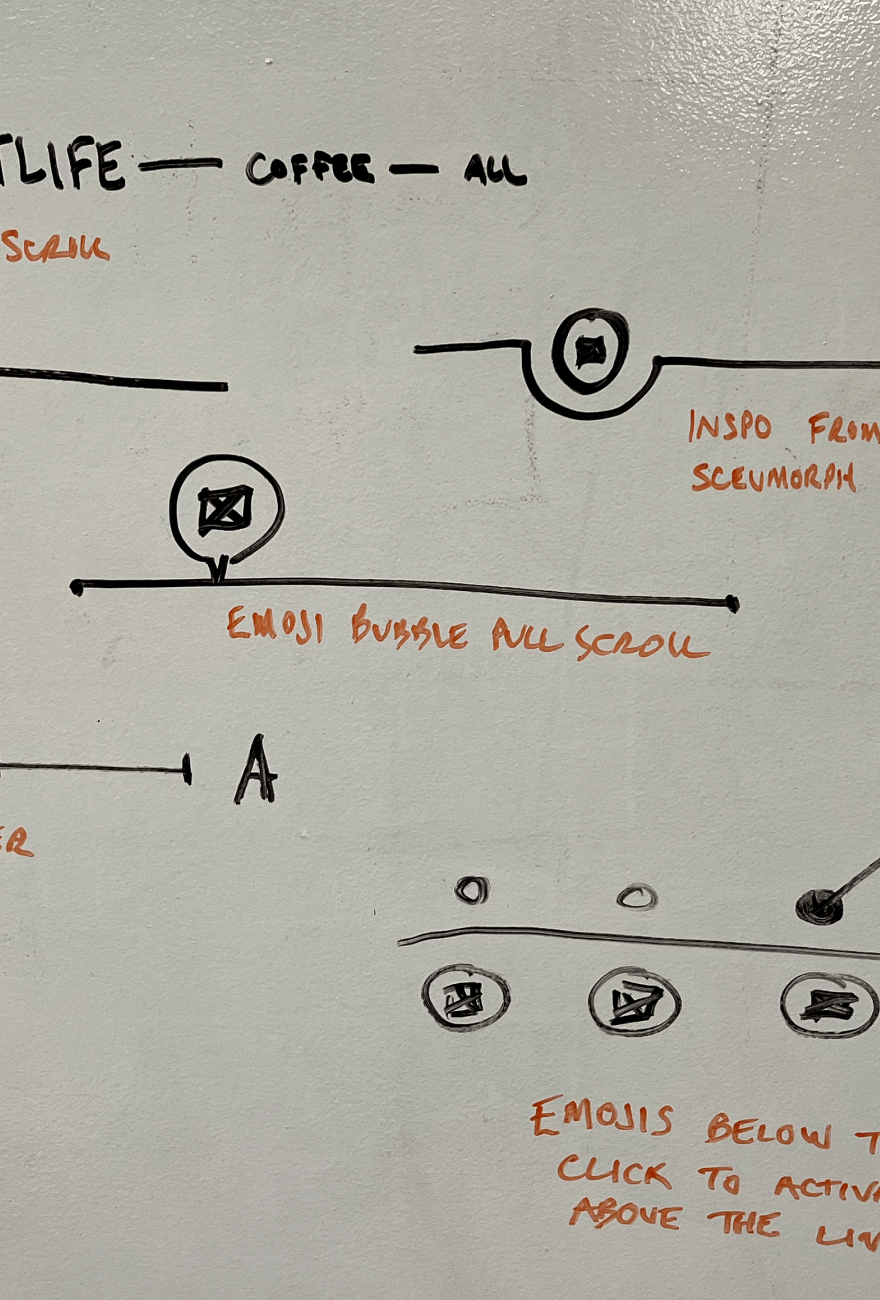 TLIFE — COFFEE — ALL
SCROLL
INSPO FROM
SCEUMORPH
EMOJI BUBBLE PULL SCROLL
A
ER
EMOJIS BELOW T
CLICK TO ACTIVA
ABOVE THE LIN